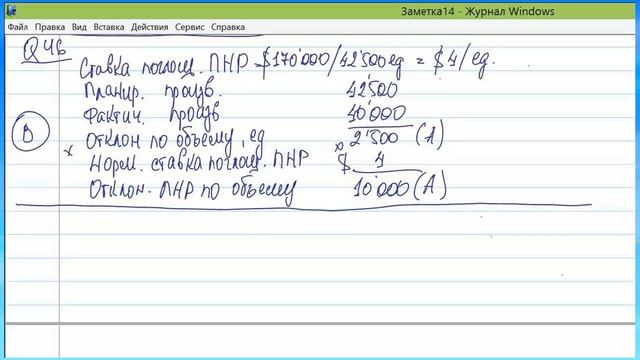 Заметка14 - Журнал Windows
Файл Правка Вид Вставка Действия Сервис Справка
Q46
Ставка поглощ. ПНР = $170'000/42'500ед = $4/ед.
Планир. произв. 42'500
Фактич. произв 40'000
B Отклон по объему, ед 2'500 (A)
x Норм. ставка поглощ. ПНР x $ 4
Отклон. ПНР по объему 10'000 (A)